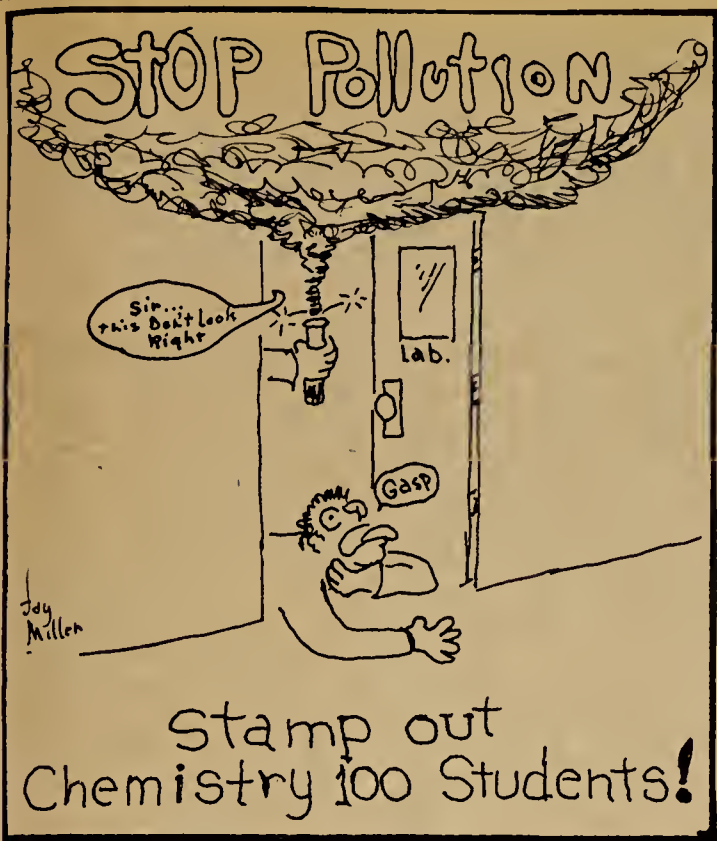 StOP Pollution
Sir...
this Don't Look
Right
lab.
Gasp
Jay
Miller
Stamp out
Chemistry 100 Students!